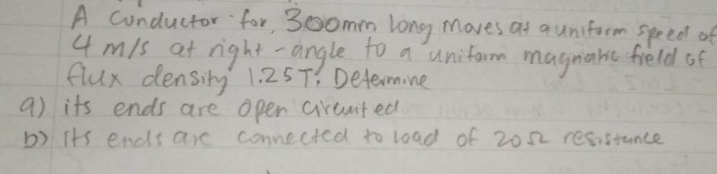 A Conductor for, 300mm long moves at a uniform speed of
4 m/s at right-angle to a uniform magnatic field of
flux density 1.25 T. Determine
a) its ends are open circuited
b) its ends are connected to load of 20Ω resistance